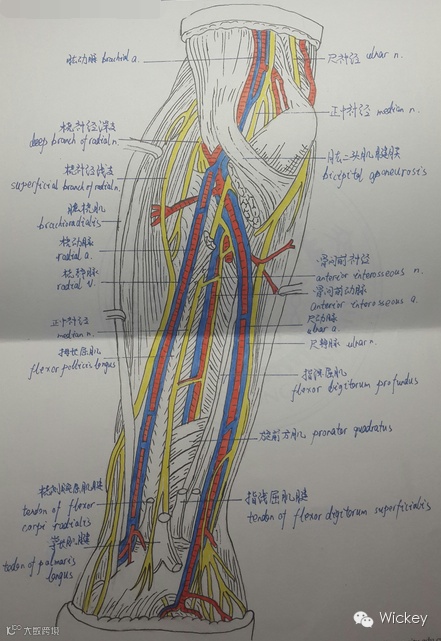 肱动脉 brachial a.
桡神经深支
deep branch of radial n.
桡神经浅支
superficial branch of radial n.
肱桡肌
brachioradialis
桡动脉
radial a.
桡静脉
radial v.
正中神经
median n.
拇长屈肌
flexor pollicis longus
桡侧腕屈肌腱
tendon of flexor
carpi radialis
掌长肌腱
tedon of palmaris
longus
尺神经 ulnar n.
正中神经 median n.
肱二头肌腱膜
bicipital aponeurosis
骨间前神经
anterior interosseous n.
骨间前动脉
anterior interosseous a.
尺动脉
ulnar a.
尺静脉 ulnar n.
指深屈肌
flexor digitorum profundus
旋前方肌 pronator quadratus
指浅屈肌腱
tendon of flexor digitorum superficialis
大数跨境
Wickey